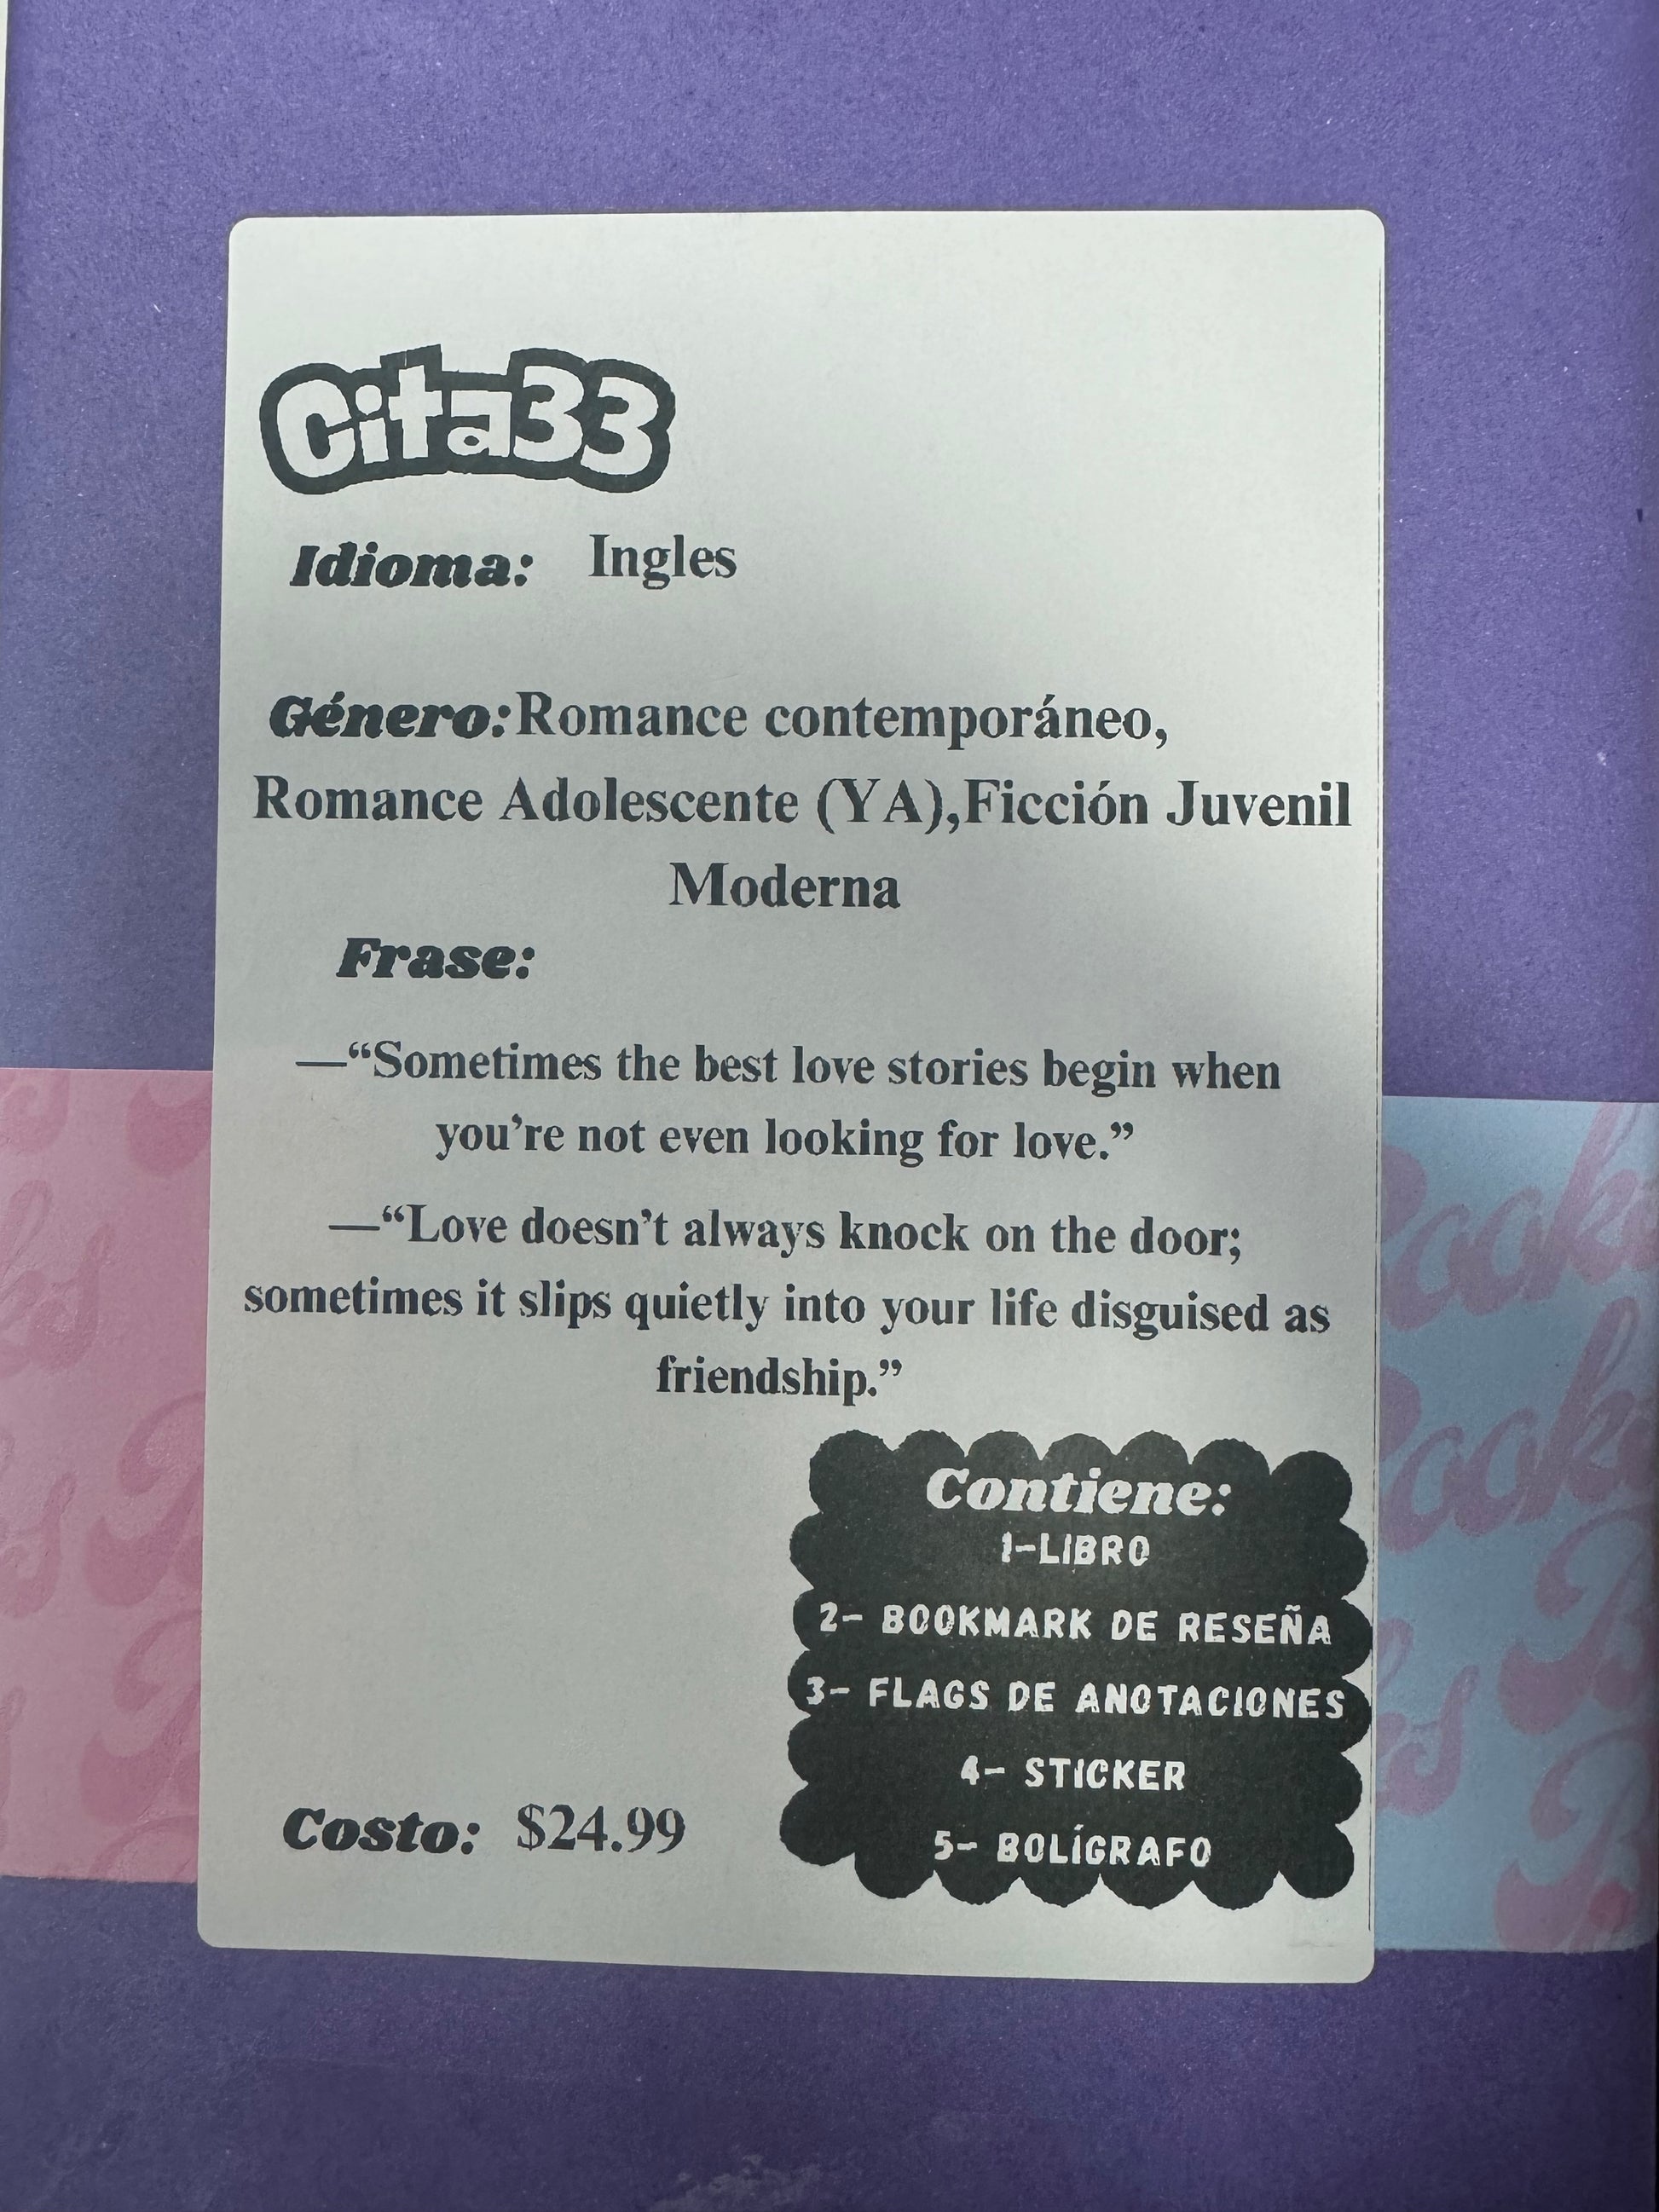 Cita33
Idioma: Ingles
Género: Romance contemporáneo,
Romance Adolescente (YA),Ficción Juvenil
Moderna
Frase:
—“Sometimes the best love stories begin when
you’re not even looking for love.”
—“Love doesn’t always knock on the door;
sometimes it slips quietly into your life disguised as
friendship.”
Contiene:
1-LIBRO
2- BOOKMARK DE RESEÑA
3- FLAGS DE ANOTACIONES
4- STICKER
5- BOLÍGRAFO
Costo: $24.99